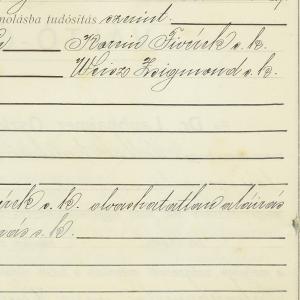 molásba tudósítás szerint.
Korin Tivérek s. k.
Weisz Zsigmond s. k.
s. k. olvashatatlan aláírás
s. k.